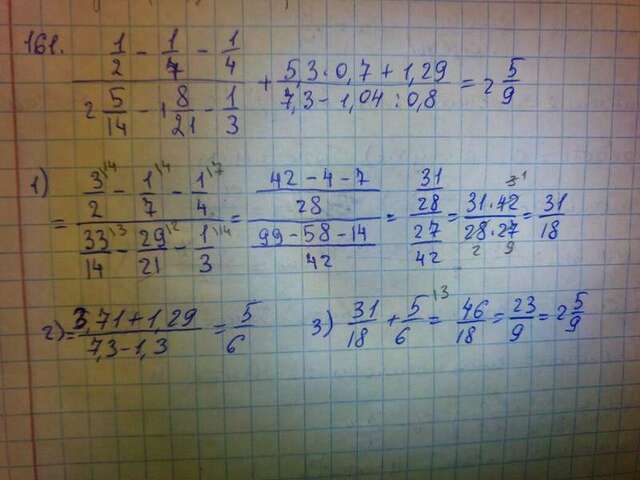 161. (1/2 - 1/7 - 1/4)/(2 5/14 - 1 8/21 - 1/3) + (5,3·0,7 + 1,29)/(7,3 - 1,04 : 0,8) = 2 5/9
1) = (3\14/2 - 1\4/7 - 1\7/4)/(33\3/14 - 29\2/21 - 1\14/3) = ((42-4-7)/28)/((99-58-14)/42) = (31/28)/(27/42) = (31·42 3 1)/(28·27 2 9) = 31/18
2) = (3,71+1,29)/(7,3-1,3) = 5/6 3) 31/18 + 5\3/6 = 46/18 = 23/9 = 2 5/9